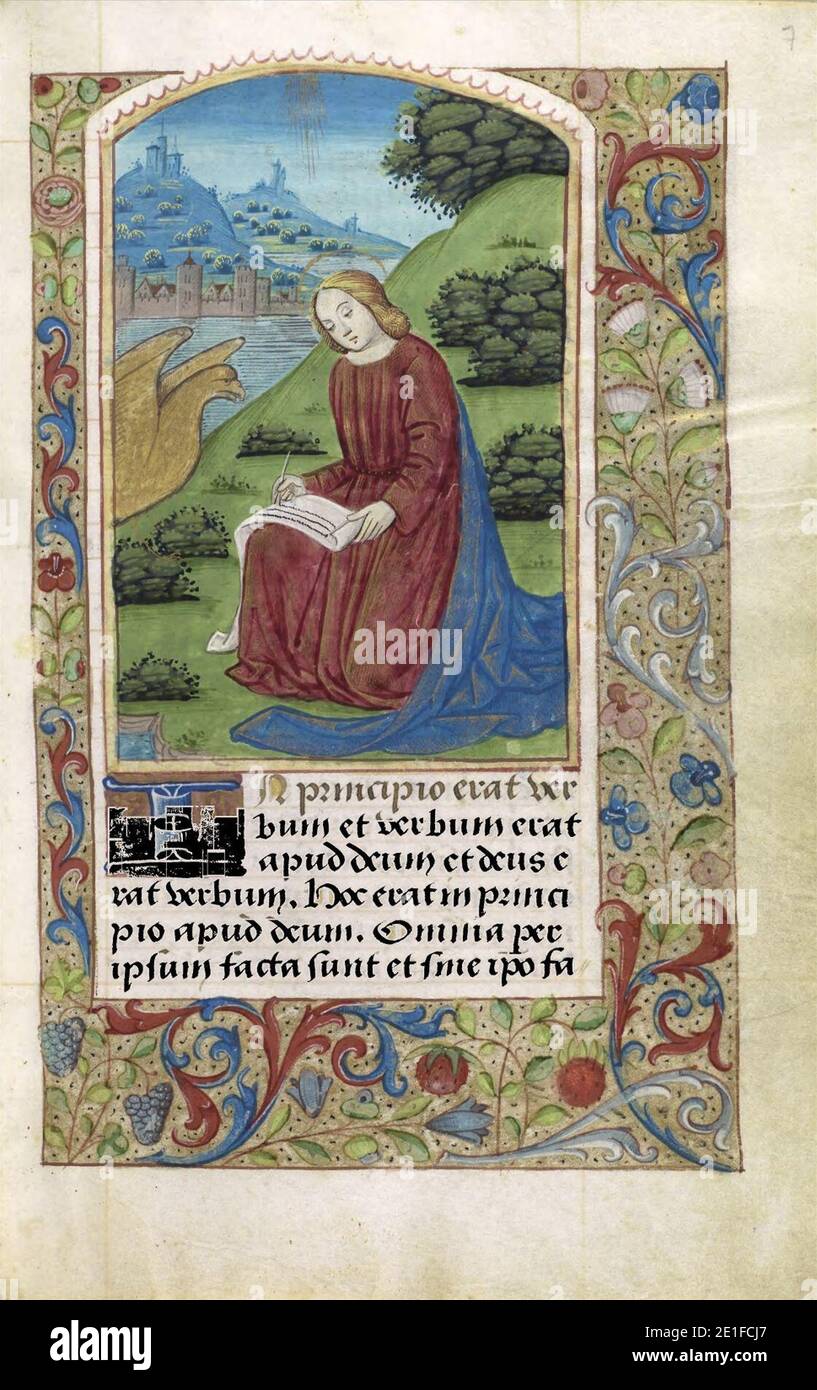 7
IN principio erat ver
bum et verbum erat
apud deum et deus e
rat verbum. Hoc erat in princi
pio apud deum. Omnia per
ipsum facta sunt et sine ipo fa
alamy
alamy
Image ID: 2E1FCJ7
www.alamy.com